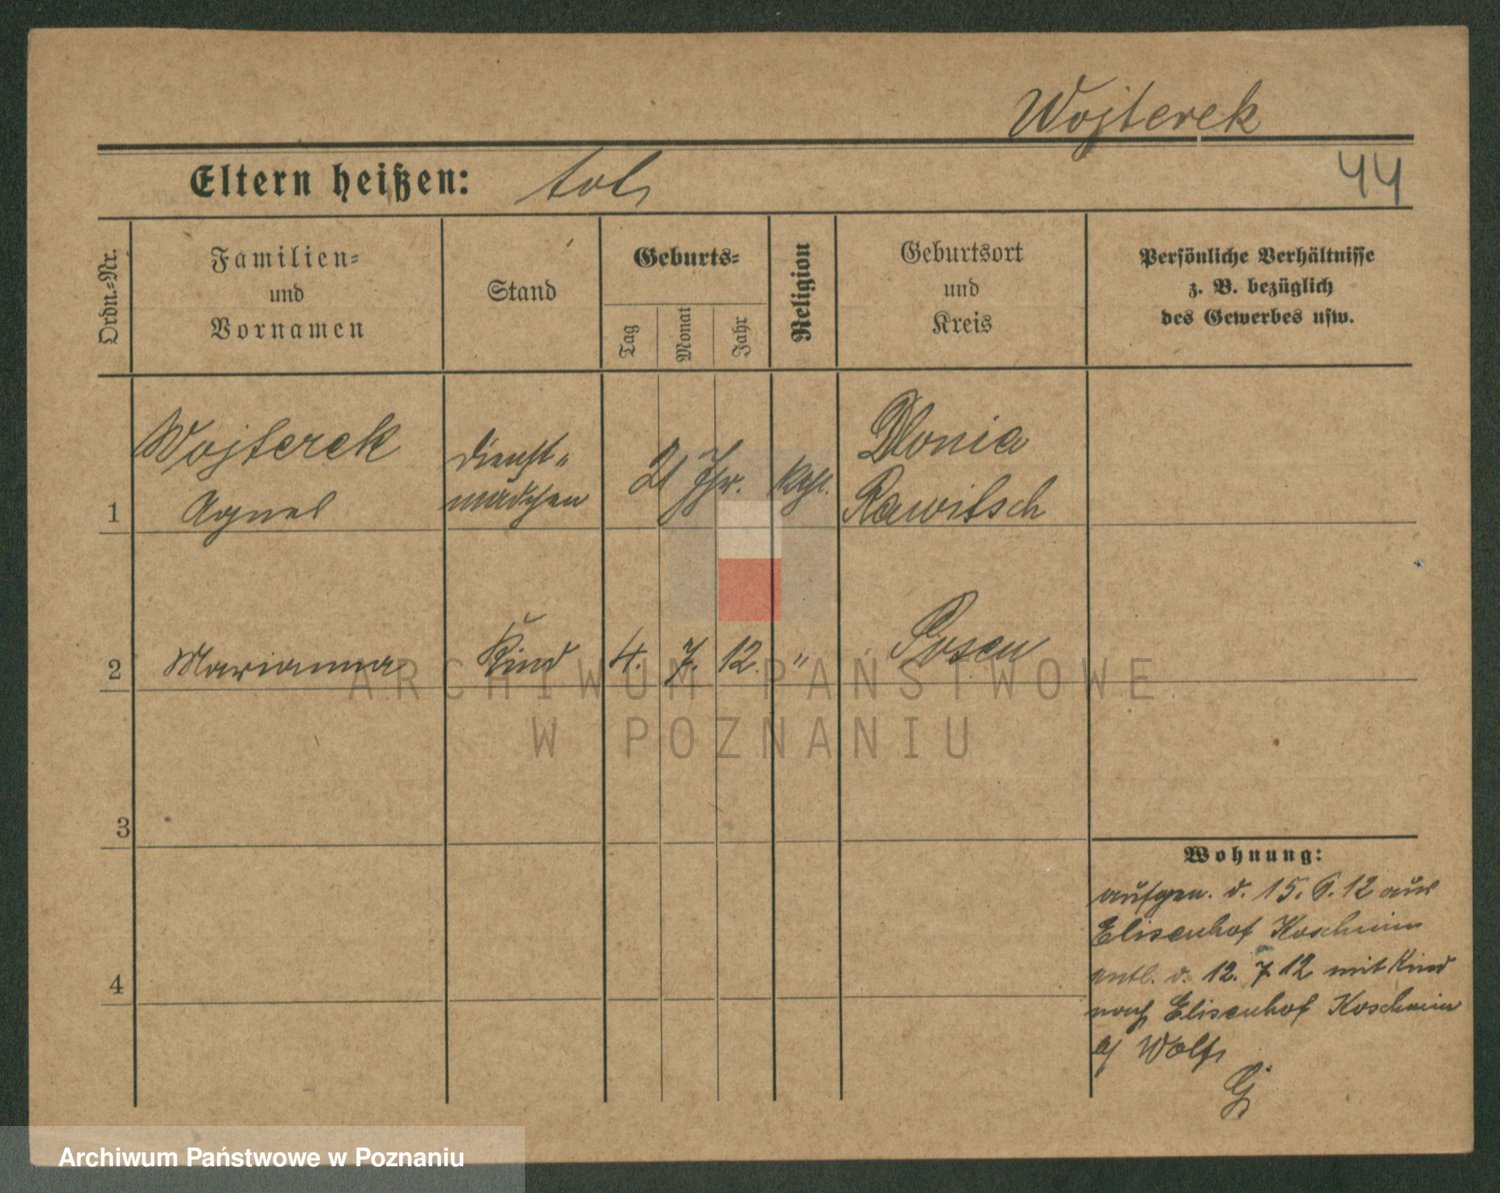 Wojterek
44
Eltern heißen:
Ordn.-Nr.
Familien-
und
Vornamen
Stand
Geburts-
Tag
Monat
Jahr
Religion
Geburtsort
und
Kreis
Persönliche Verhältnisse
z. B. bezüglich
des Gewerbes usw.
1
Wojterek
Agnes
Dienst-
mädchen
21 Jhr.
kath.
Dlonia
Rawitsch
2
Marianna
Kind
4. 7. 12.
"
Posen
3
4
Wohnung:
aufgen. d. 15. 6. 12 aus
Elisenhof Koschmin
entl. d. 12. 7 12 mit Kind
nach Elisenhof Koschmin
Wolf
ARCHIWUM PAŃSTWOWE
W POZNANIU
Archiwum Państwowe w Poznaniu